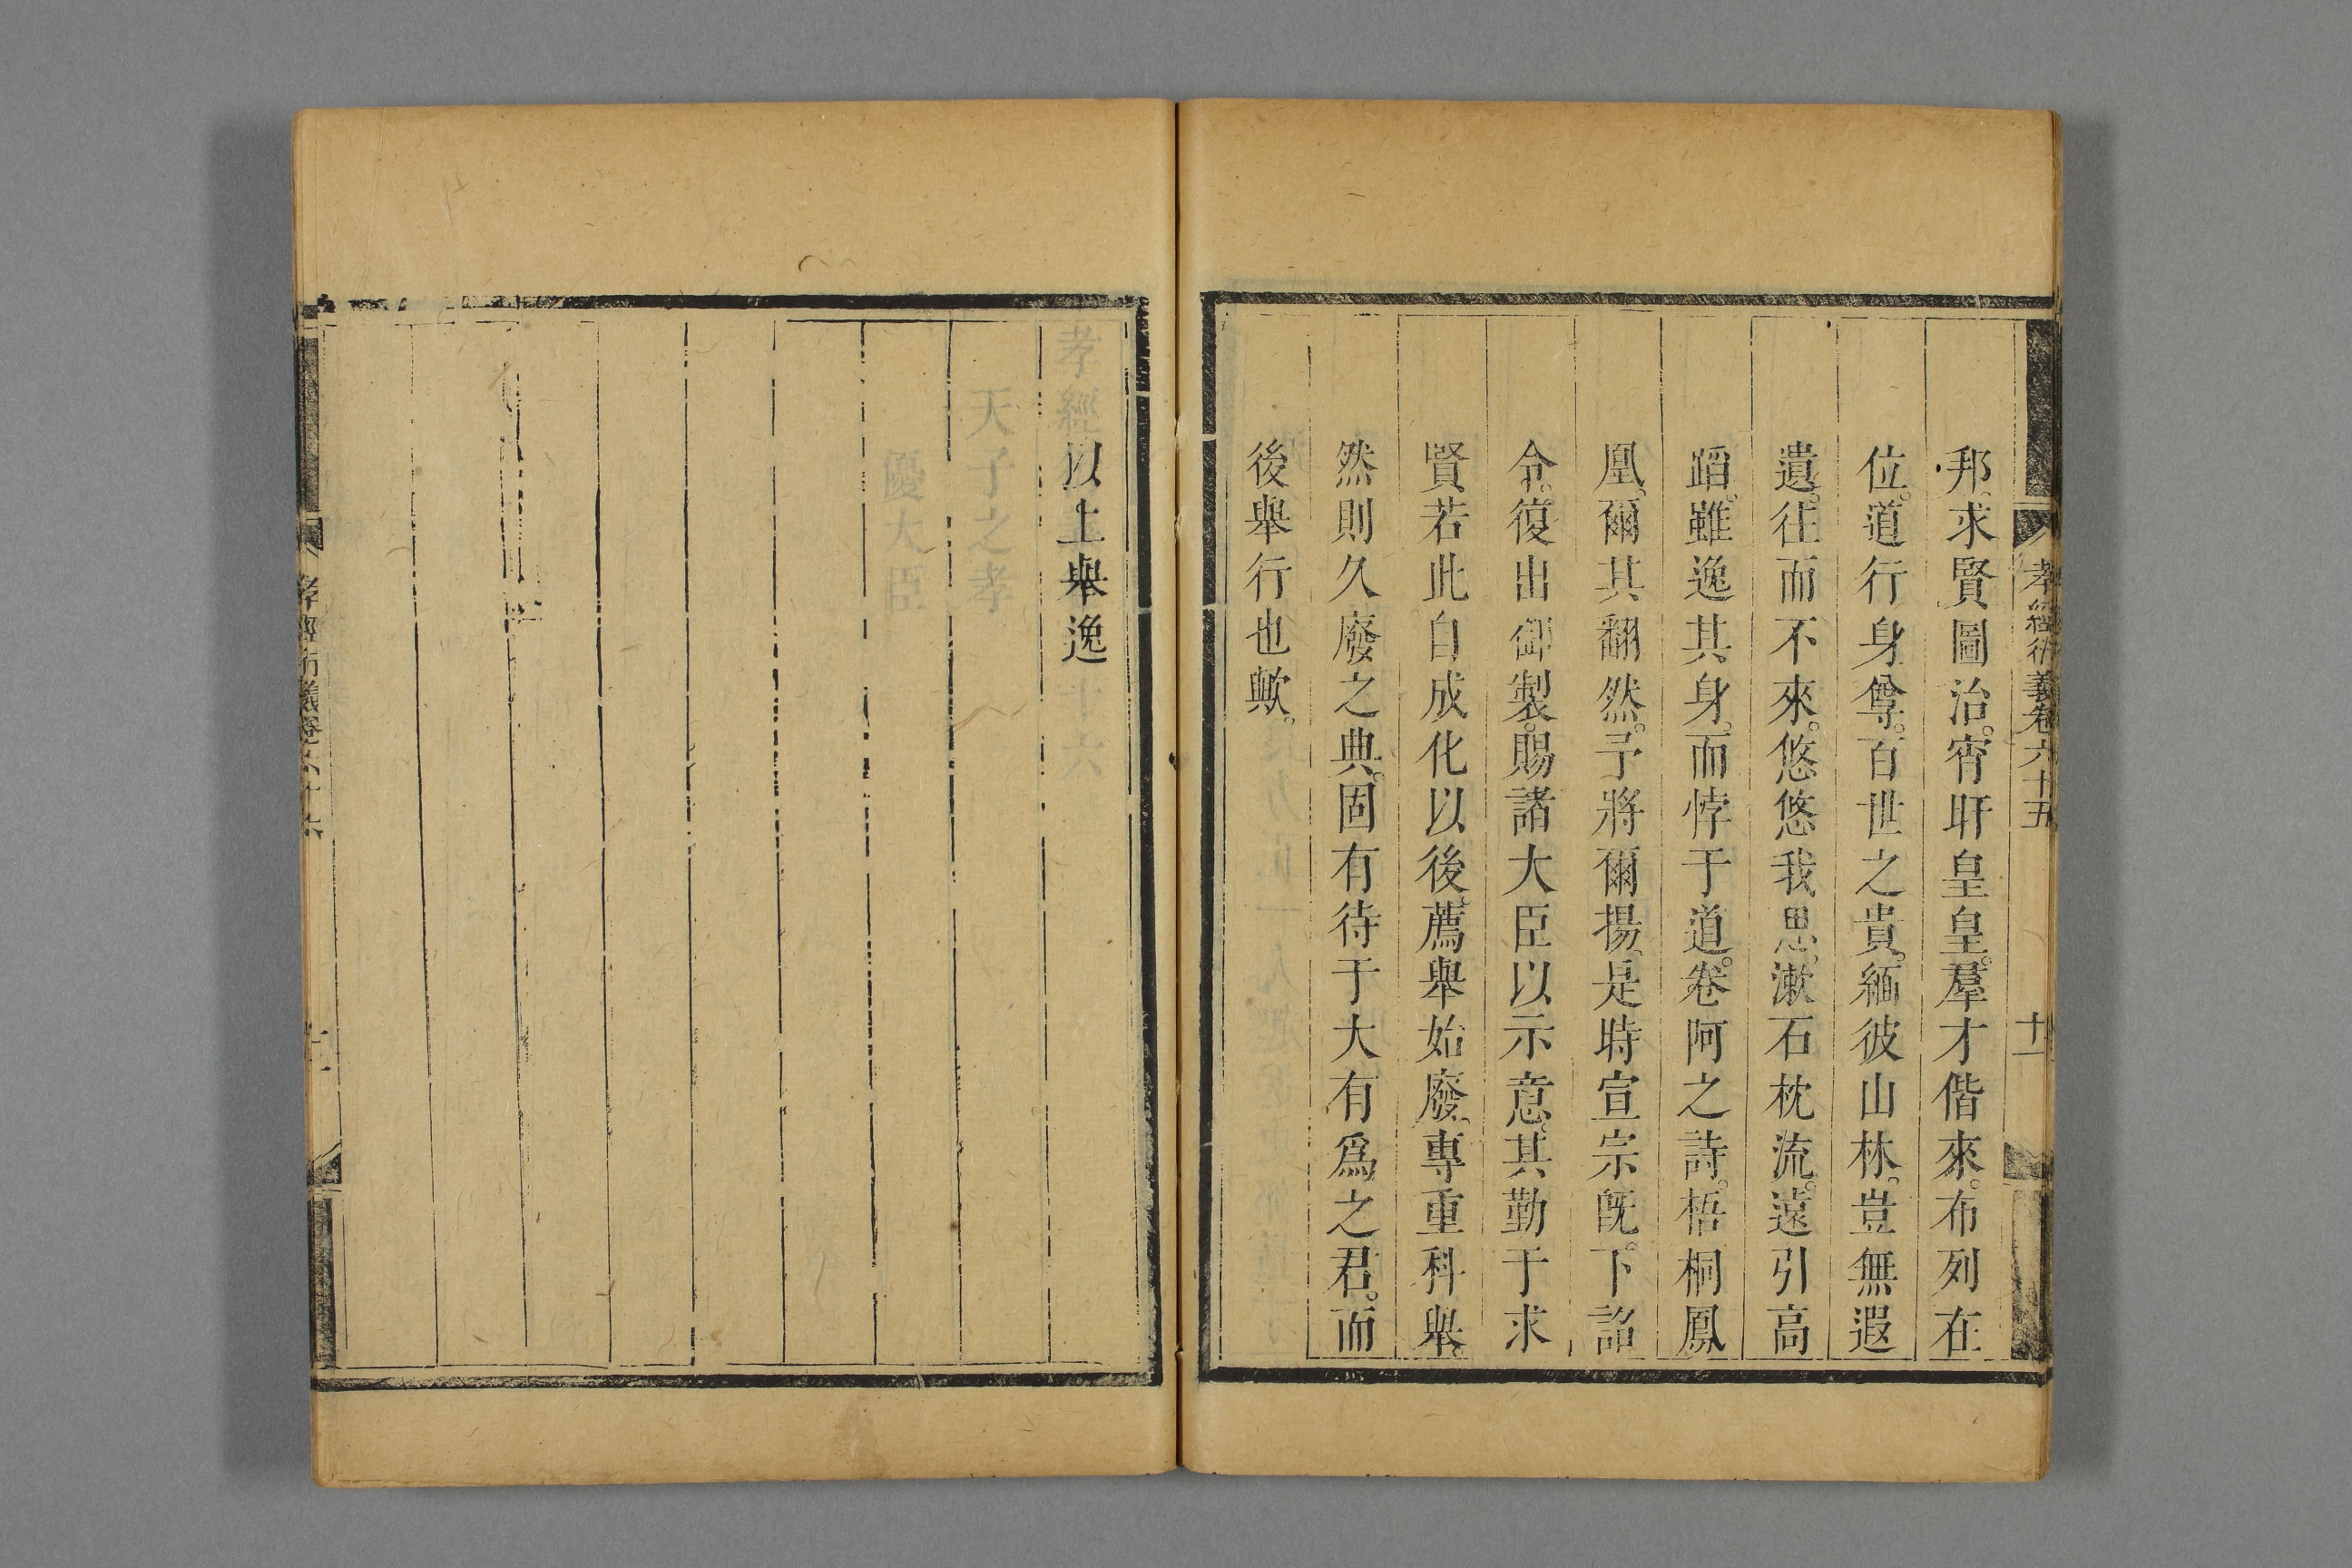 孝經衍義卷六十五
十一
邦求賢圖治。宵旰皇皇。羣才偕來。布列在
位。道行身尊。百世之貴。緬彼山林。豈無遐
遺。往而不來。悠悠我思。漱石枕流。遠引高
蹈。雖逸其身。而悖于道。卷阿之詩。梧桐鳳
凰。爾其翻然。予將爾揚。是時宣宗旣。下詔
令。復出御製。賜諸大臣以示意。其勤于求
賢若此自成化以後。薦舉始廢。專重科舉。
然則久廢之典。固有待于大有爲之君。而
後舉行也歟。
以上舉逸